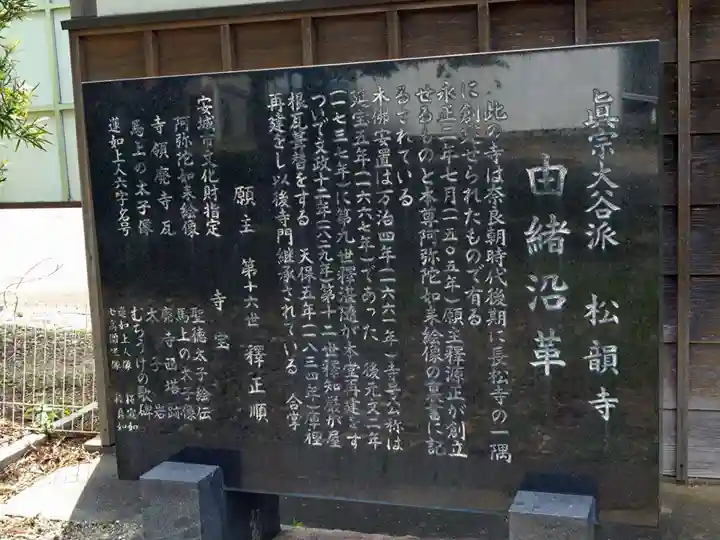 眞宗大谷派　松韻寺
由緒沿革
此の寺は奈良朝時代後期に長松寺の一隅
に創立せられたもので有る
永正二年七月(一五〇五年)願主釋源正が創立
せるものと本尊阿弥陀如来絵像の裏書に記
るされている
木佛安置は万治四年(一六六一年)寺号公称は
延宝五年(一六六七年)であった　後元文二年
(一七三七年)に第九世釋 が本堂再建をす
ついで文政十二年(一八二九年)第十二世釋知嚴が屋
根瓦葺替をする　天保五年(一八三四年)庫裡
再建をし以後寺門継承されている　合掌
願主　第十六世　釋正順
安城市文化財指定
阿弥陀如来絵像
寺領廃寺瓦
馬上の太子像
蓮如上人六字名号
寺宝
聖徳太子絵伝
馬上の太子像
廃寺西塔跡
太子岩
むちつけの歌碑
蓮如上人像
七高僧御像